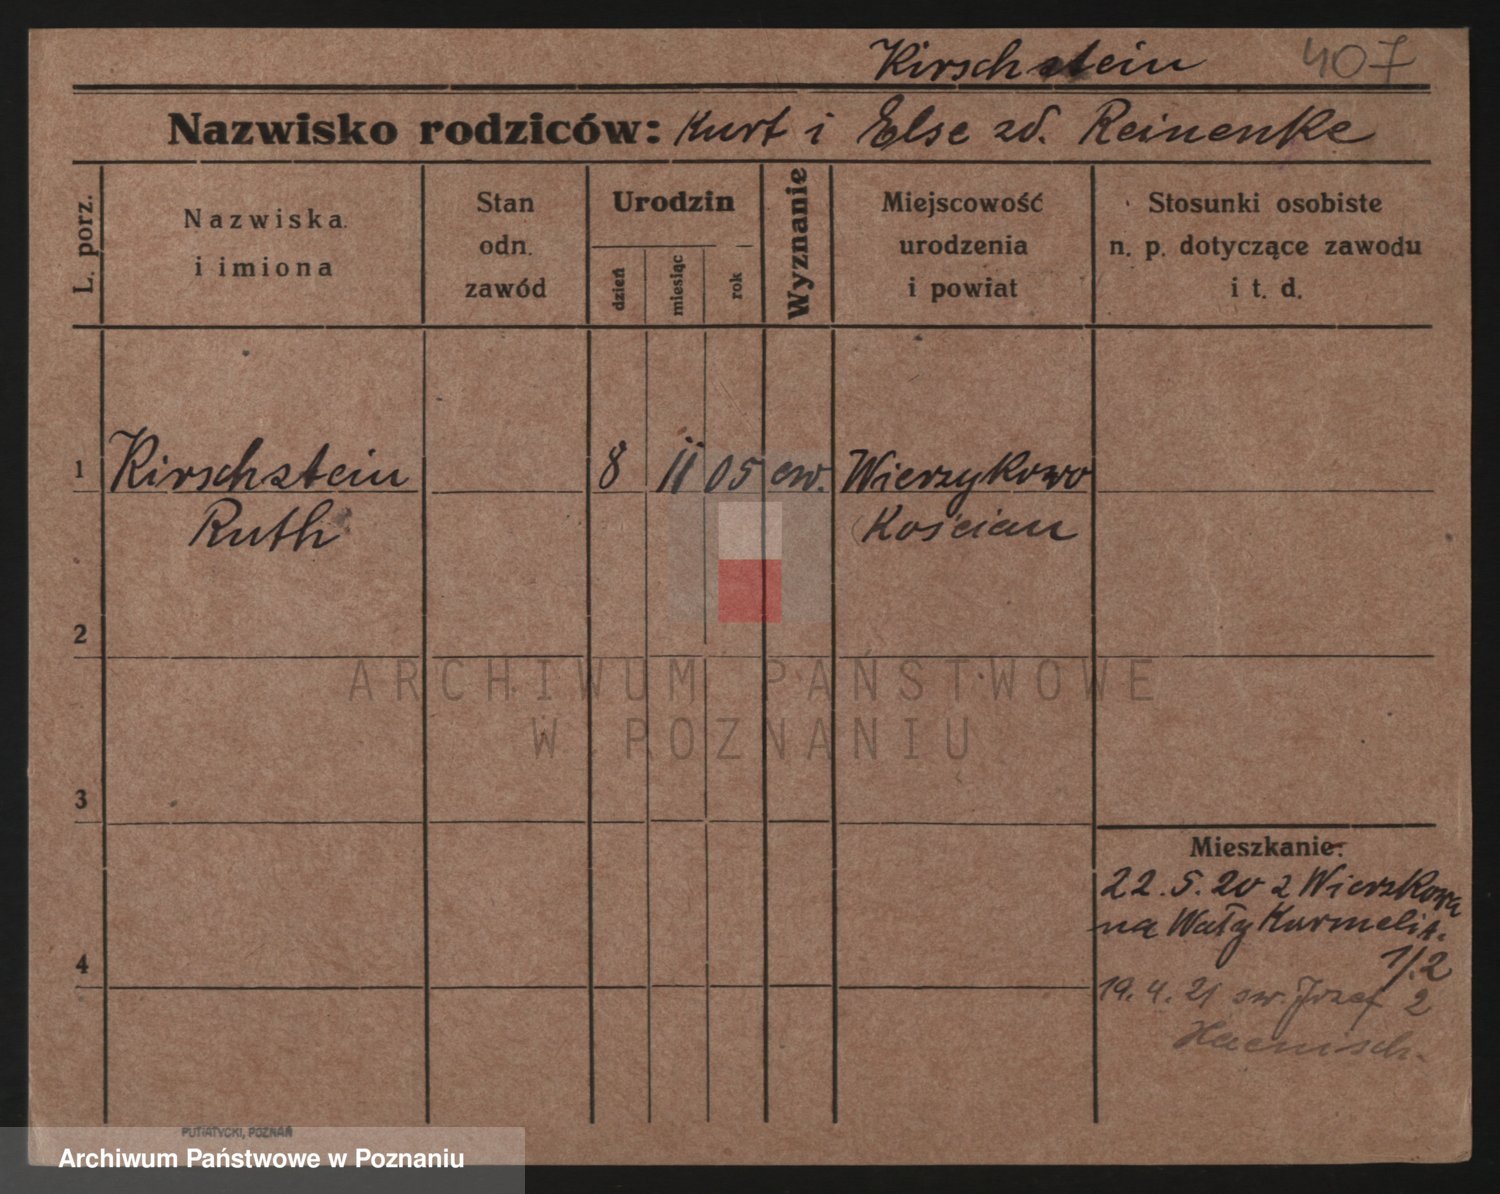 Kirschstein 407
Nazwisko rodziców: Kurt i Else zd. Reinenke
L. porz.
Nazwiska
i imiona
Stan
odn.
zawód
Urodzin
dzień
miesiąc
rok
Wyznanie
Miejscowość
urodzenia
i powiat
Stosunki osobiste
n. p. dotyczące zawodu
i t. d.
1 Kirschstein 8 II 05 ew. Wierzykowo
Ruth Kościan
2
ARCHIWUM PAŃSTWOWE
W POZNANIU
3
Mieszkanie:
22.5.20 z Wierzkowa
na Wały Karmelit.
1/2
4
19.4.21 św. Józef 2
Haenisch.
PUTIATYCKI, POZNAŃ
Archiwum Państwowe w Poznaniu